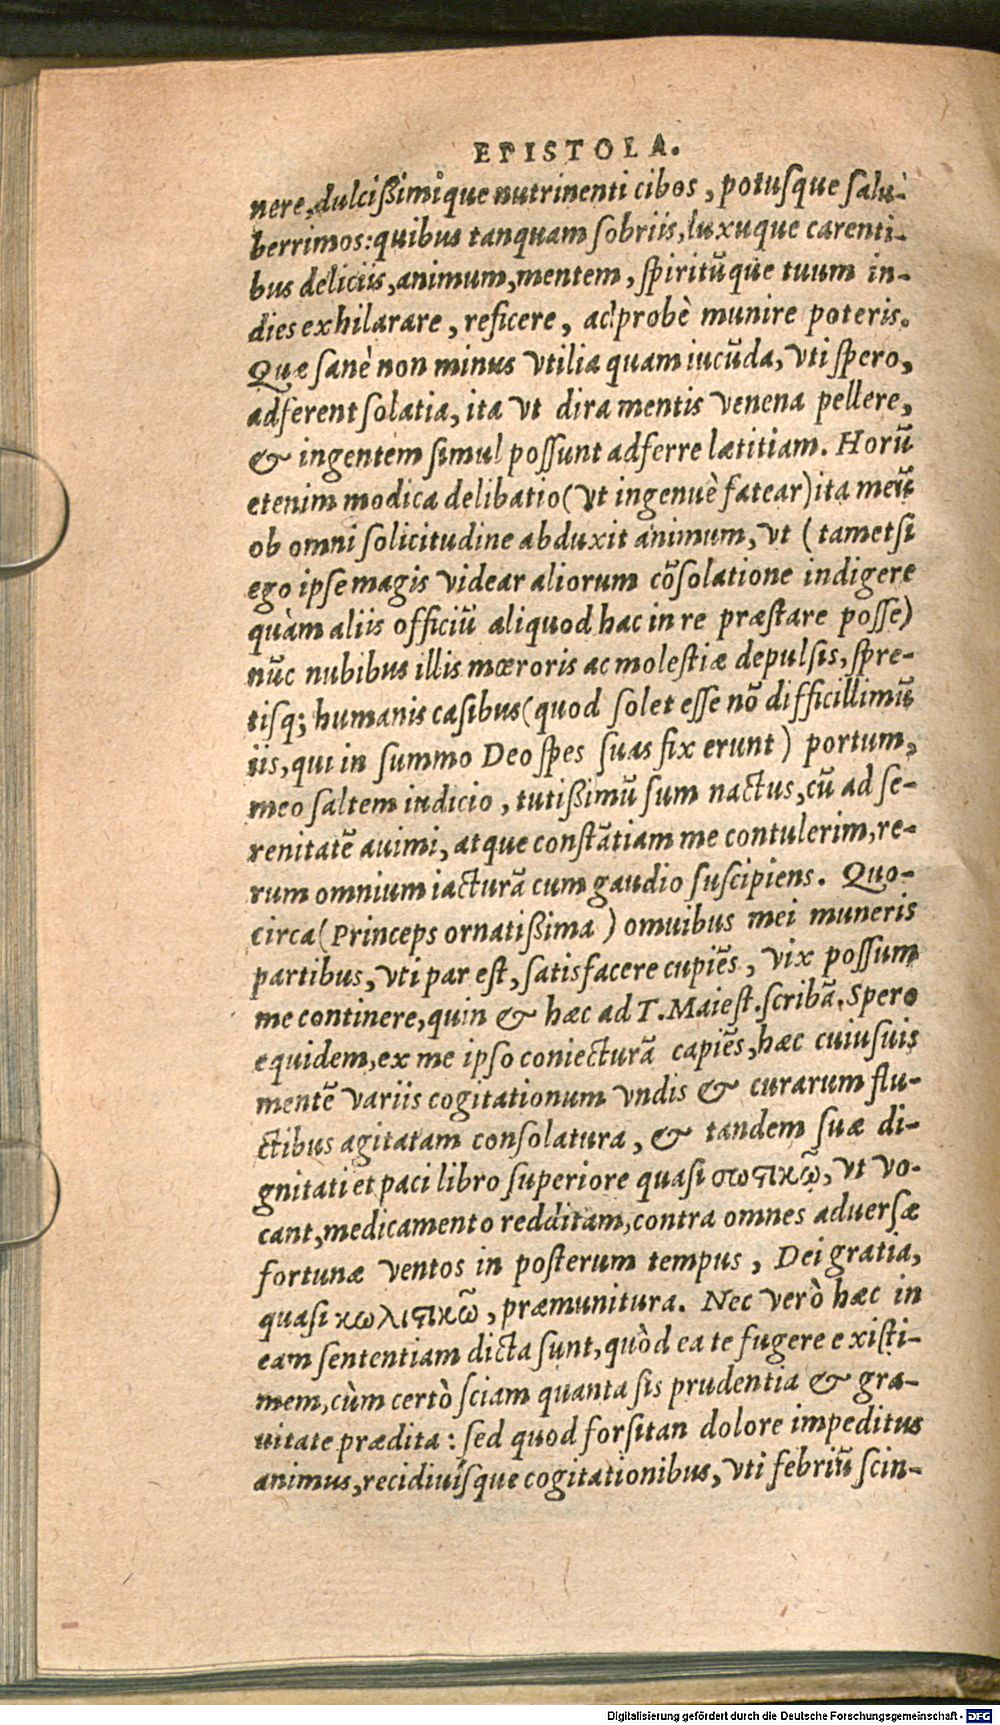 EPISTOLA.
nere, dulcißimíque nutrinenti cibos, potusque salu-
berrimos: quibus tanquam sobriis, luxuque carenti-
bus deliciis, animum, mentem, spiritũque tuum in-
dies exhilarare, reficere, ac probè munire poteris.
Quæ sanè non minus vtilia quam iucũda, vti spero,
adferent solatia, ita vt dira mentis venena pellere,
& ingentem simul possunt adferre lætitiam. Horũ
etenim modica delibatio (vt ingenuè fatear) ita meũ
ob omni solicitudine abduxit animum, vt (tametsi
ego ipse magis videar aliorum cõsolatione indigere
quàm aliis officiũ aliquod hac in re præstare posse)
nũc nubibus illis mœroris ac molestiæ depulsis, spre-
tisq; humanis casibus (quod solet esse nõ difficillimũ
iis, qui in summo Deo spes suas fixerunt) portum,
meo saltem iudicio, tutißimũ sum nactus, cũ ad se-
renitatẽ auimi, atque constãtiam me contulerim, re-
rum omnium iacturã cum gaudio suscipiens. Quo-
circa (Princeps ornatißima) omuibus mei muneris
partibus, vti par est, satisfacere cupiẽs, vix possum
me continere, quin & hæc ad T. Maiest. scribã. Spero
equidem, ex me ipso coniecturã capiẽs, hæc cuiusuis
mentẽ variis cogitationum vndis & curarum flu-
ctibus agitatam consolatura, & tandem suæ di-
gnitati et paci libro superiore quasi σωτικῶ, vt vo-
cant, medicamento redditam, contra omnes aduersæ
fortunæ ventos in posterum tempus, Dei gratia,
quasi κωλιτικῶ, præmunitura. Nec verò hæc in
eam sententiam dicta sunt, quòd ea te fugere existi-
mem, cùm certò sciam quanta sis prudentia & gra-
uitate prædita: sed quod forsitan dolore impeditus
animus, recidiuísque cogitationibus, vti febriũ scin-
Digitalisierung gefördert durch die Deutsche Forschungsgemeinschaft - DFG